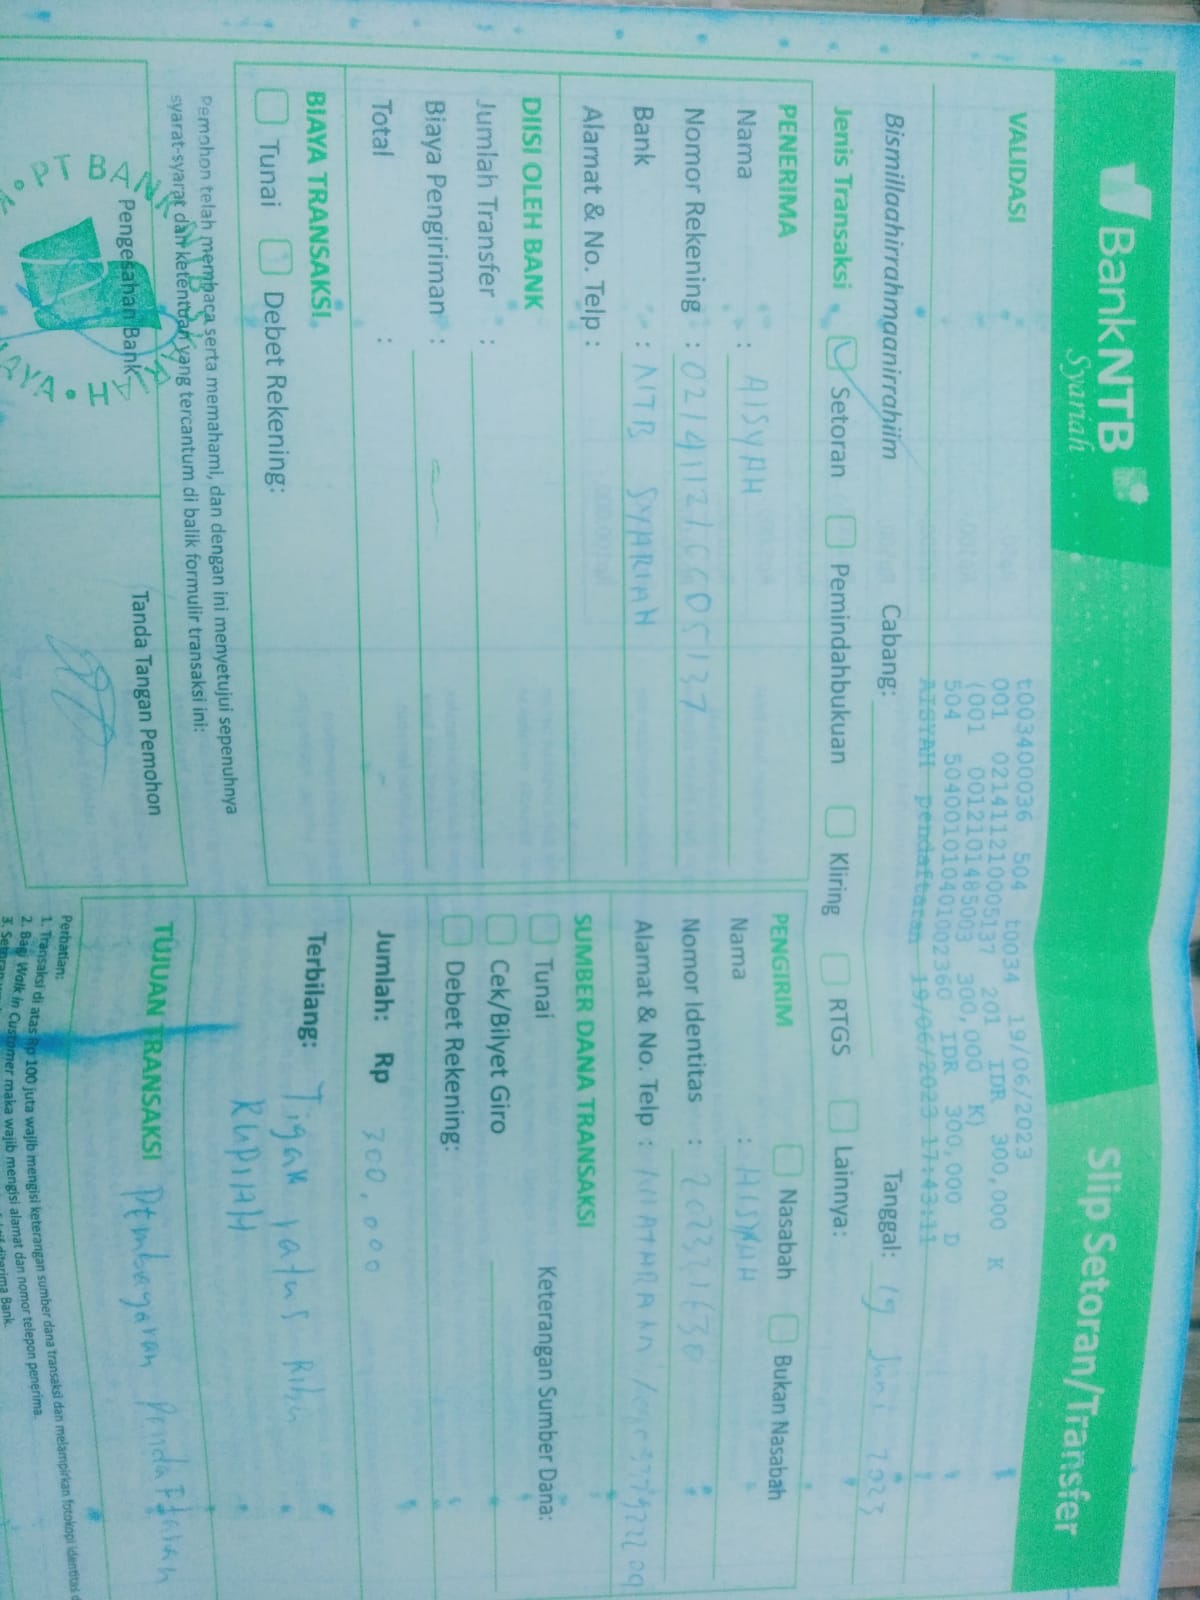 BankNTB
Syariah
Slip Setoran/Transfer
VALIDASI
t003400036 504 t0034 19/06/2023
001 021411210005137 201 IDR 300,000 K
(001 0012101485003 300,000 K)
504 5040010104010002360 IDR 300,000 D
AISYAH pendaftaran 19/06/2023 17:43:11
Bismillaahirrahmaanirrahiim
Cabang:
Tanggal: 19 Juni 2023
Jenis Transaksi
Setoran
Pemindahbukuan
Kliring
RTGS
Lainnya:
PENERIMA
Nama : AISYAH
Nomor Rekening :
Bank : NTB SYARIAH
Alamat & No. Telp :
PENGIRIM
Nasabah
Bukan Nasabah
Nama : AISYAH
Nomor Identitas : 20231630
Alamat & No. Telp :
DIISI OLEH BANK
Jumlah Transfer :
Biaya Pengiriman :
Total :
SUMBER DANA TRANSAKSI
Tunai
Keterangan Sumber Dana:
Cek/Bilyet Giro
Debet Rekening:
BIAYA TRANSAKSI
Tunai
Debet Rekening:
Jumlah: Rp 300.000
Terbilang: Tiga Ratus Ribu
RUPIAH
Pemohon telah membaca serta memahami, dan dengan ini menyetujui sepenuhnya
syarat-syarat dan ketentuan yang tercantum di balik formulir transaksi ini:
Pengesahan Bank
Tanda Tangan Pemohon
PT BANK
TUJUAN TRANSAKSI Pembayaran Pendaftaran
Perhatian:
1. Transaksi di atas Rp 100 juta wajib mengisi keterangan sumber dana transaksi dan melampirkan fotokopi identitas
2. Bagi Walk in Customer maka wajib mengisi alamat dan nomor telepon penerima.
3. Setoran diterima Bank.